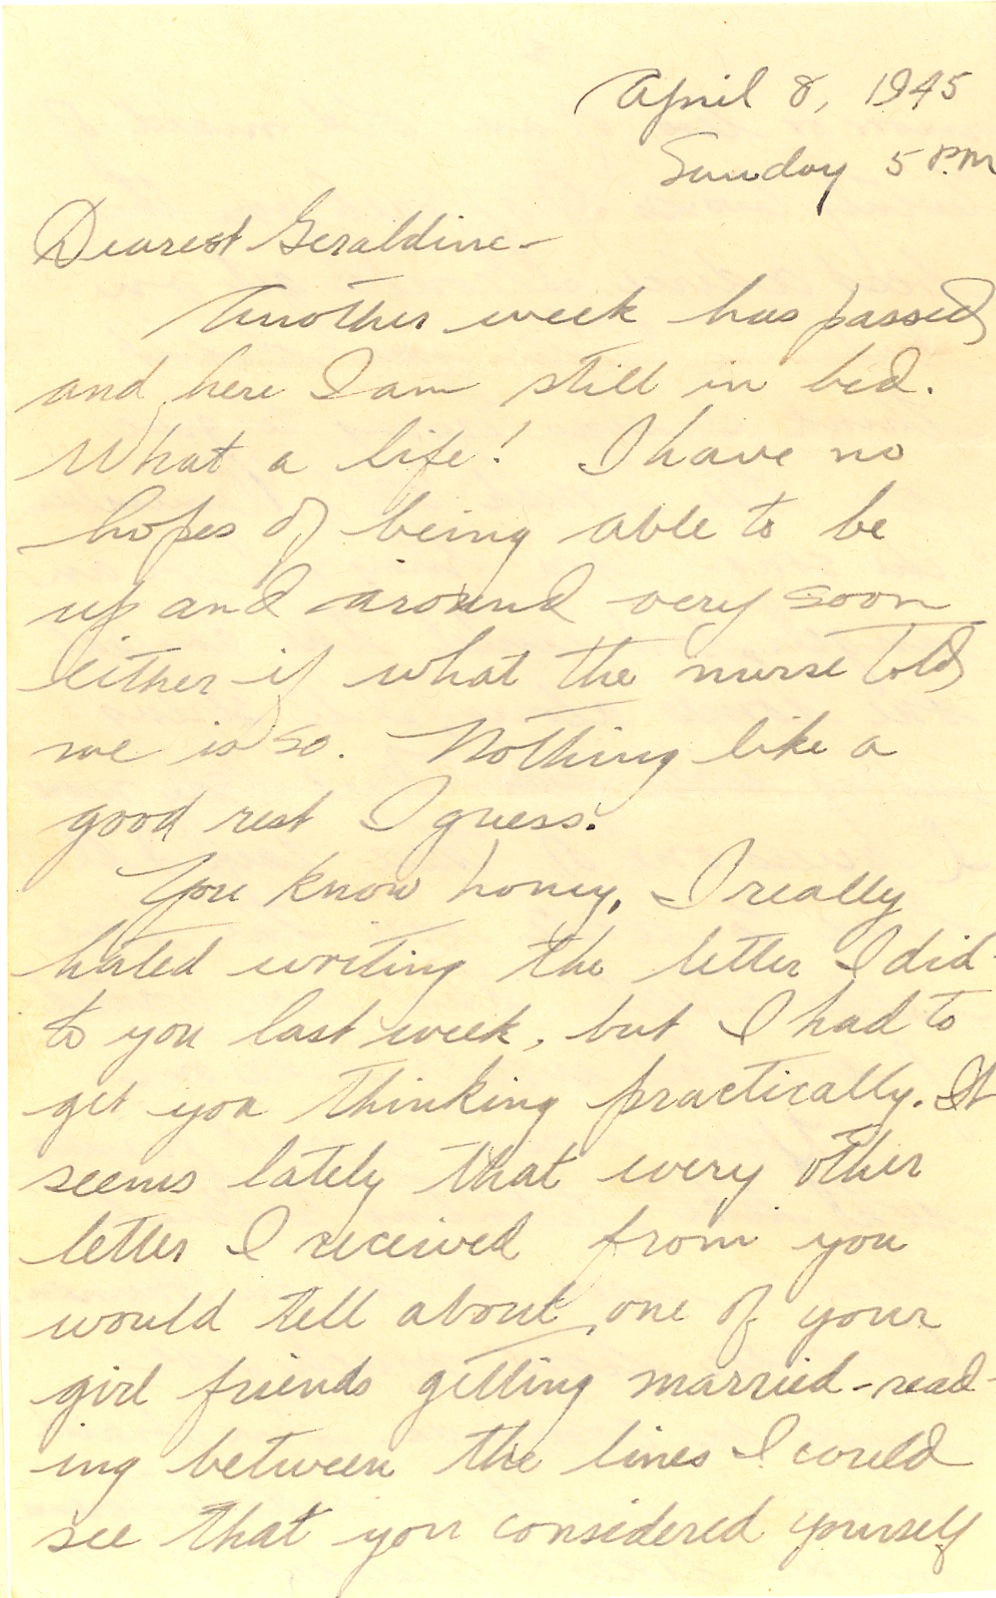 April 8, 1945
Sunday 5 P.M
Dearest Geraldine-
Another week has passed
and here I am still in bed.
What a life! I have no
hopes of being able to be
up and around very soon
either if what the nurse told
me is so. Nothing like a
good rest I guess.
You know honey, I really
hated writing the letter I did
to you last week, but I had to
get you thinking practically. It
seems lately that every other
letter I received from you
would tell about one of your
girl friends getting married-read-
ing between the lines I could
see that you considered yourself